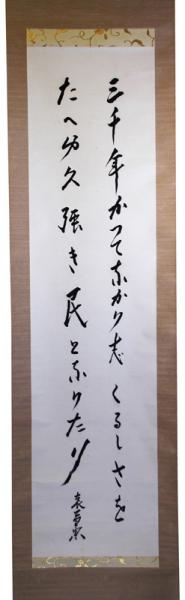 三千年かつてなかり志くるしさを
たへぬ久強き民となりたり